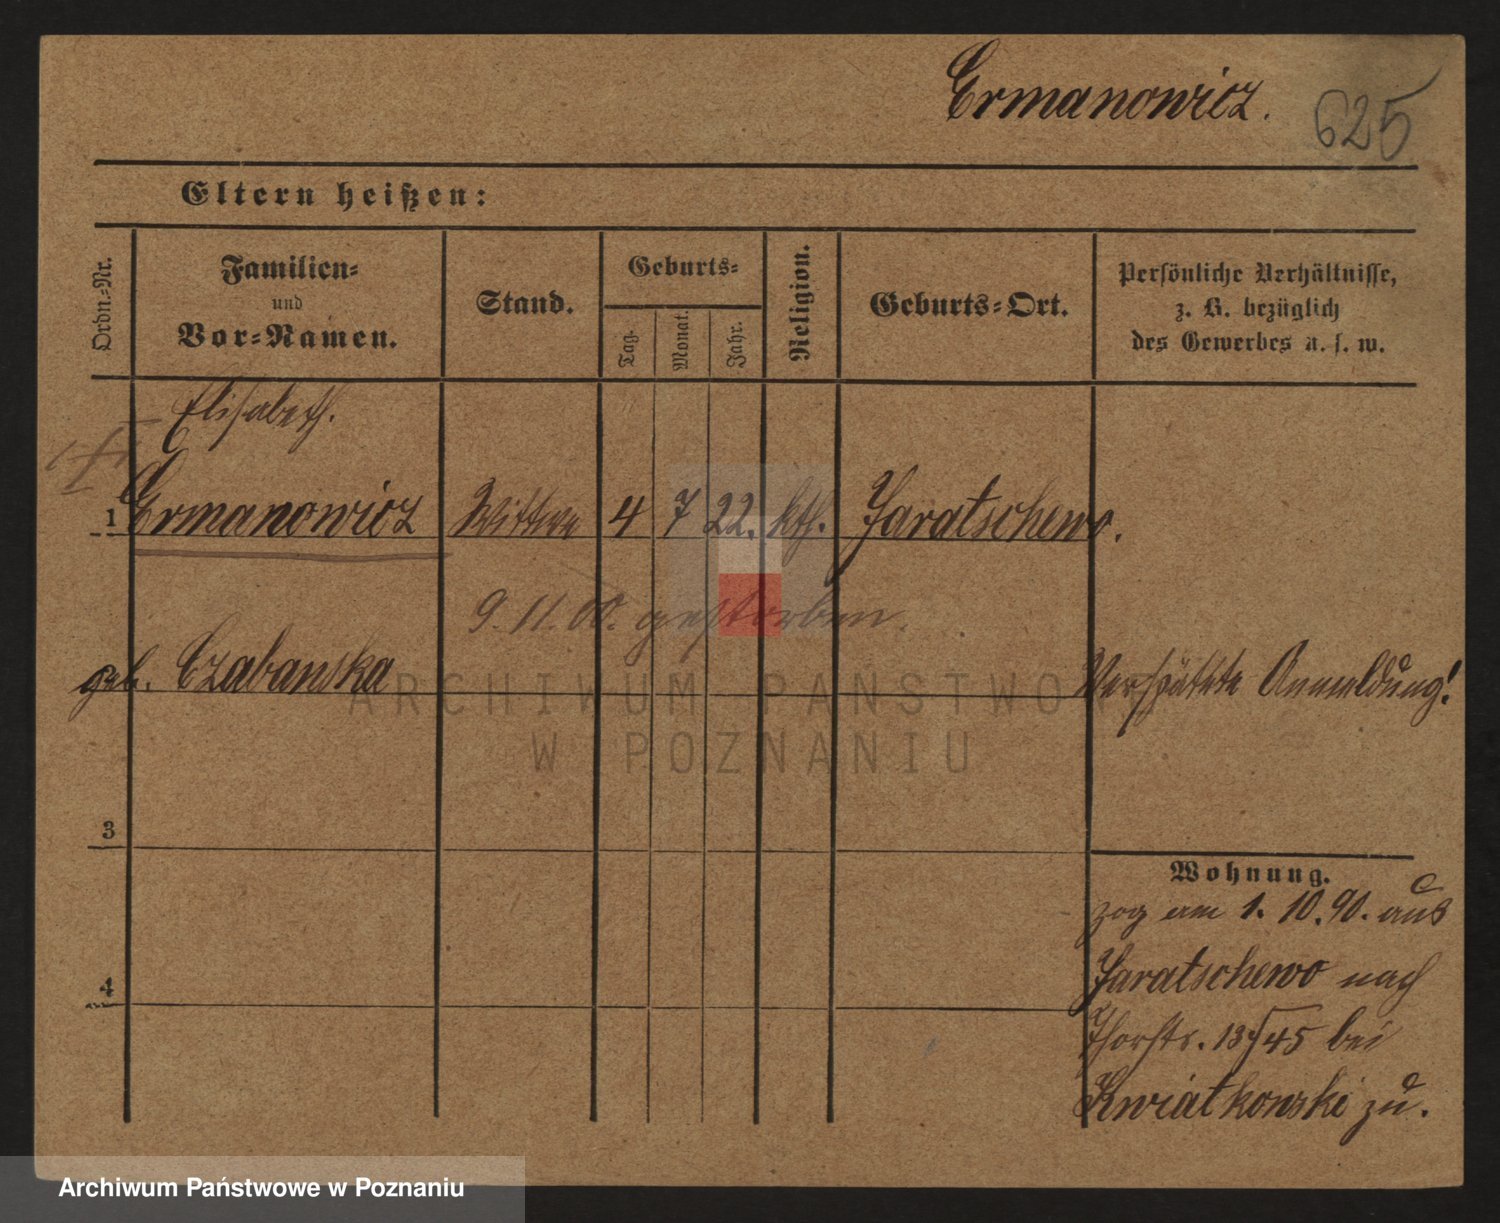 Ermanowicz. 625
Eltern heißen:
Ordn.-Nr.
Familien-
und
Vor-Namen.
Stand.
Geburts-
Tag.
Monat.
Jahr.
Religion.
Geburts-Ort.
Persönliche Verhältnisse,
z. B. bezüglich
des Gewerbes u. s. w.
Elisabeth.
1 Ermanowicz Wittwe 4 7 22. kth. Jaratschewo.
9. 11. 00. gestorben.
geb. Czabanska Verspätete Anmeldung!
ARCHIWUM PAŃSTWOWE
W POZNANIU
3
Wohnung.
zog am 1. 10. 90. aus
4
Jaratschewo nach
Thorstr. 13/45 bei
Kwiatkowski zu.
Archiwum Państwowe w Poznaniu